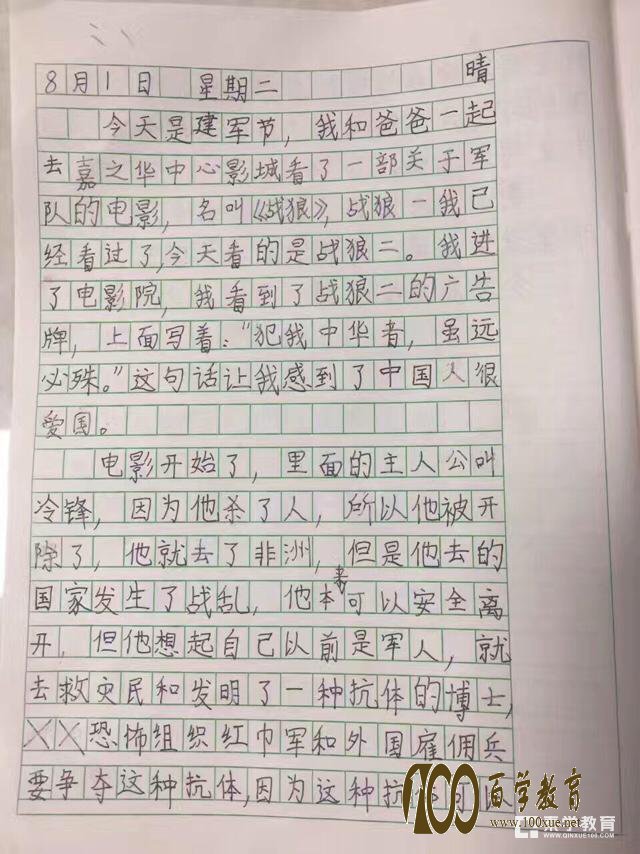 8月1日 星期二 晴
今天是建军节，我和爸爸一起
去嘉之华中心影城看了一部关于军
队的电影，名叫《战狼》，战狼一我已
经看过了，今天看的是战狼二。我进
了电影院，我看到了战狼二的广告
牌，上面写着：“犯我中华者，虽远
必殊。”这句话让我感到了中国人很
爱国。
电影开始了，里面的主人公叫
冷锋，因为他杀了人，所以他被开
除了，他就去了非洲，但是他去的
国家发生了战乱，他本来可以安全离
开，但他想起自己以前是军人，就
去救灾民和发明了一种抗体的博士，
恐怖组织红巾军和外国雇佣兵
要争夺这种抗体，因为这种抗体可以
100百学教育
www.100xue.net
亲学教育
WWW.QINXUE100.COM